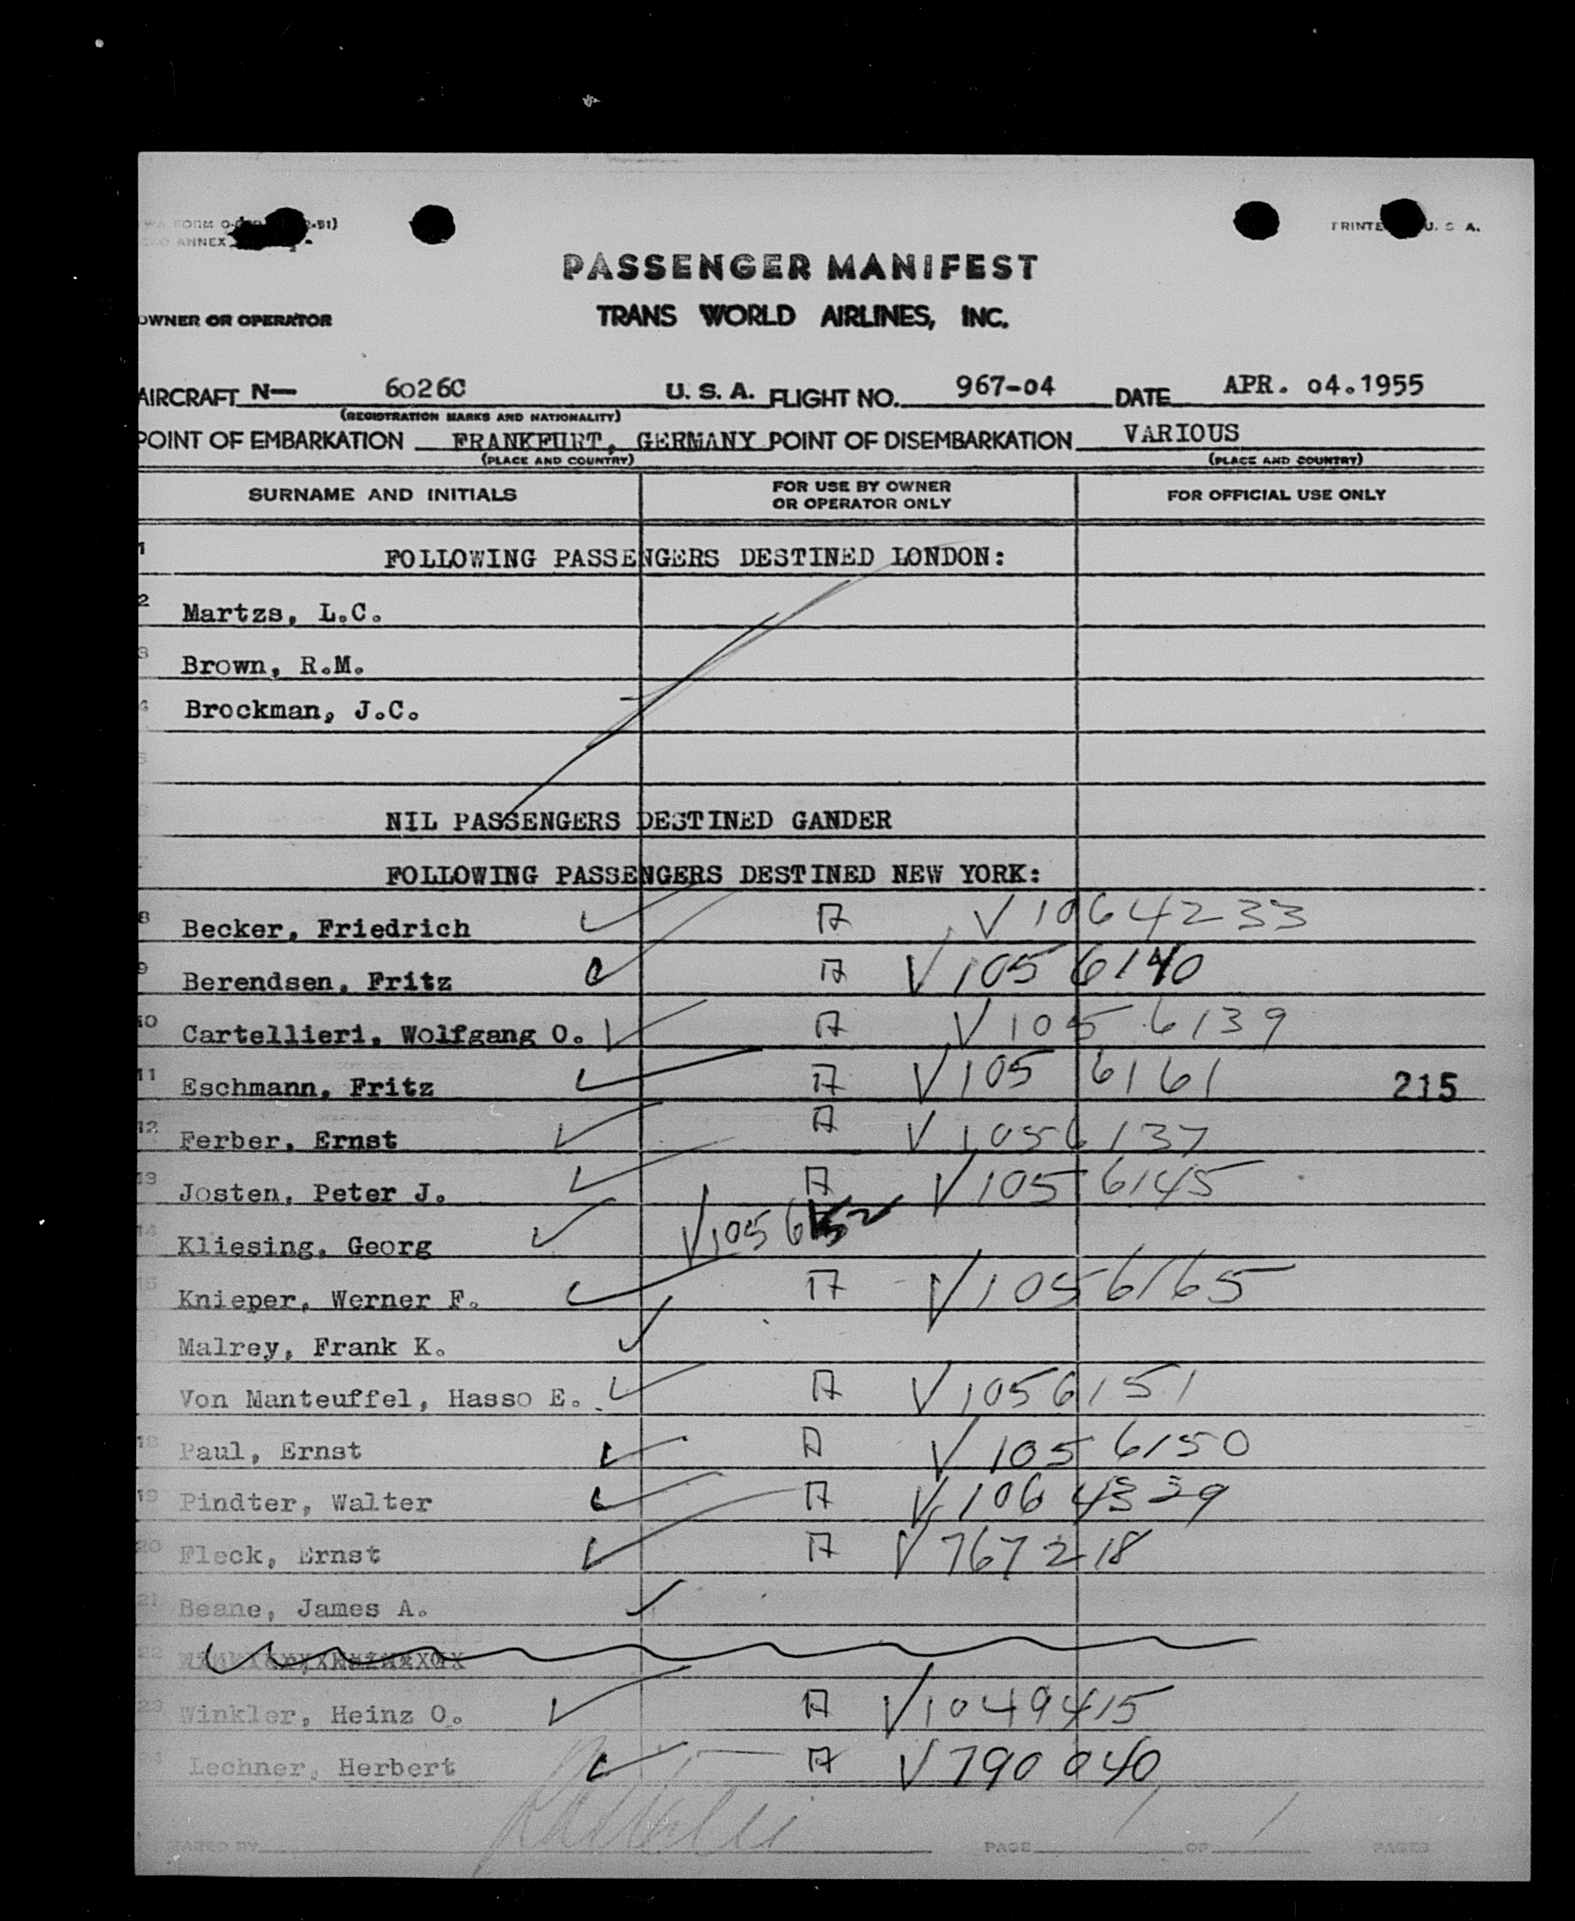 PRINTE U. S. A.
ANNEX
PASSENGER MANIFEST
OWNER OR OPERATOR
TRANS WORLD AIRLINES, INC.
AIRCRAFT N— 6026C U. S. A. FLIGHT NO. 967-04 DATE APR. 04.1955
(REGISTRATION MARKS AND NATIONALITY)
POINT OF EMBARKATION FRANKFURT, GERMANY POINT OF DISEMBARKATION VARIOUS
(PLACE AND COUNTRY) (PLACE AND COUNTRY)
SURNAME AND INITIALS FOR USE BY OWNER OR OPERATOR ONLY FOR OFFICIAL USE ONLY
1 FOLLOWING PASSENGERS DESTINED LONDON:
2 Martzs, L.C.
3 Brown, R.M.
4 Brockman, J.C.
5
6 NIL PASSENGERS DESTINED GANDER
FOLLOWING PASSENGERS DESTINED NEW YORK:
8 Becker, Friedrich A V1064233
9 Berendsen, Fritz A V1056140
10 Cartellieri, Wolfgang O. A V1056139
11 Eschmann, Fritz A V1056161 215
12 Ferber, Ernst A V1056137
13 Josten, Peter J. A V1056145
14 Kliesing, Georg V1056152
15 Knieper, Werner F. A V1056165
Malrey, Frank K.
Von Manteuffel, Hasso E. A V1056151
18 Paul, Ernst A V1056150
19 Pindter, Walter A V1064339
20 Fleck, Ernst A V767218
21 Beane, James A.
22
23 Winkler, Heinz O. A V1049415
24 Lechner, Herbert A V790040
PAGE 1 OF 1 PAGES